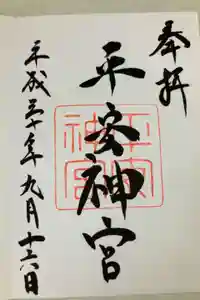 奉拝
平安神宮
平安神宮
平成三十年九月十六日